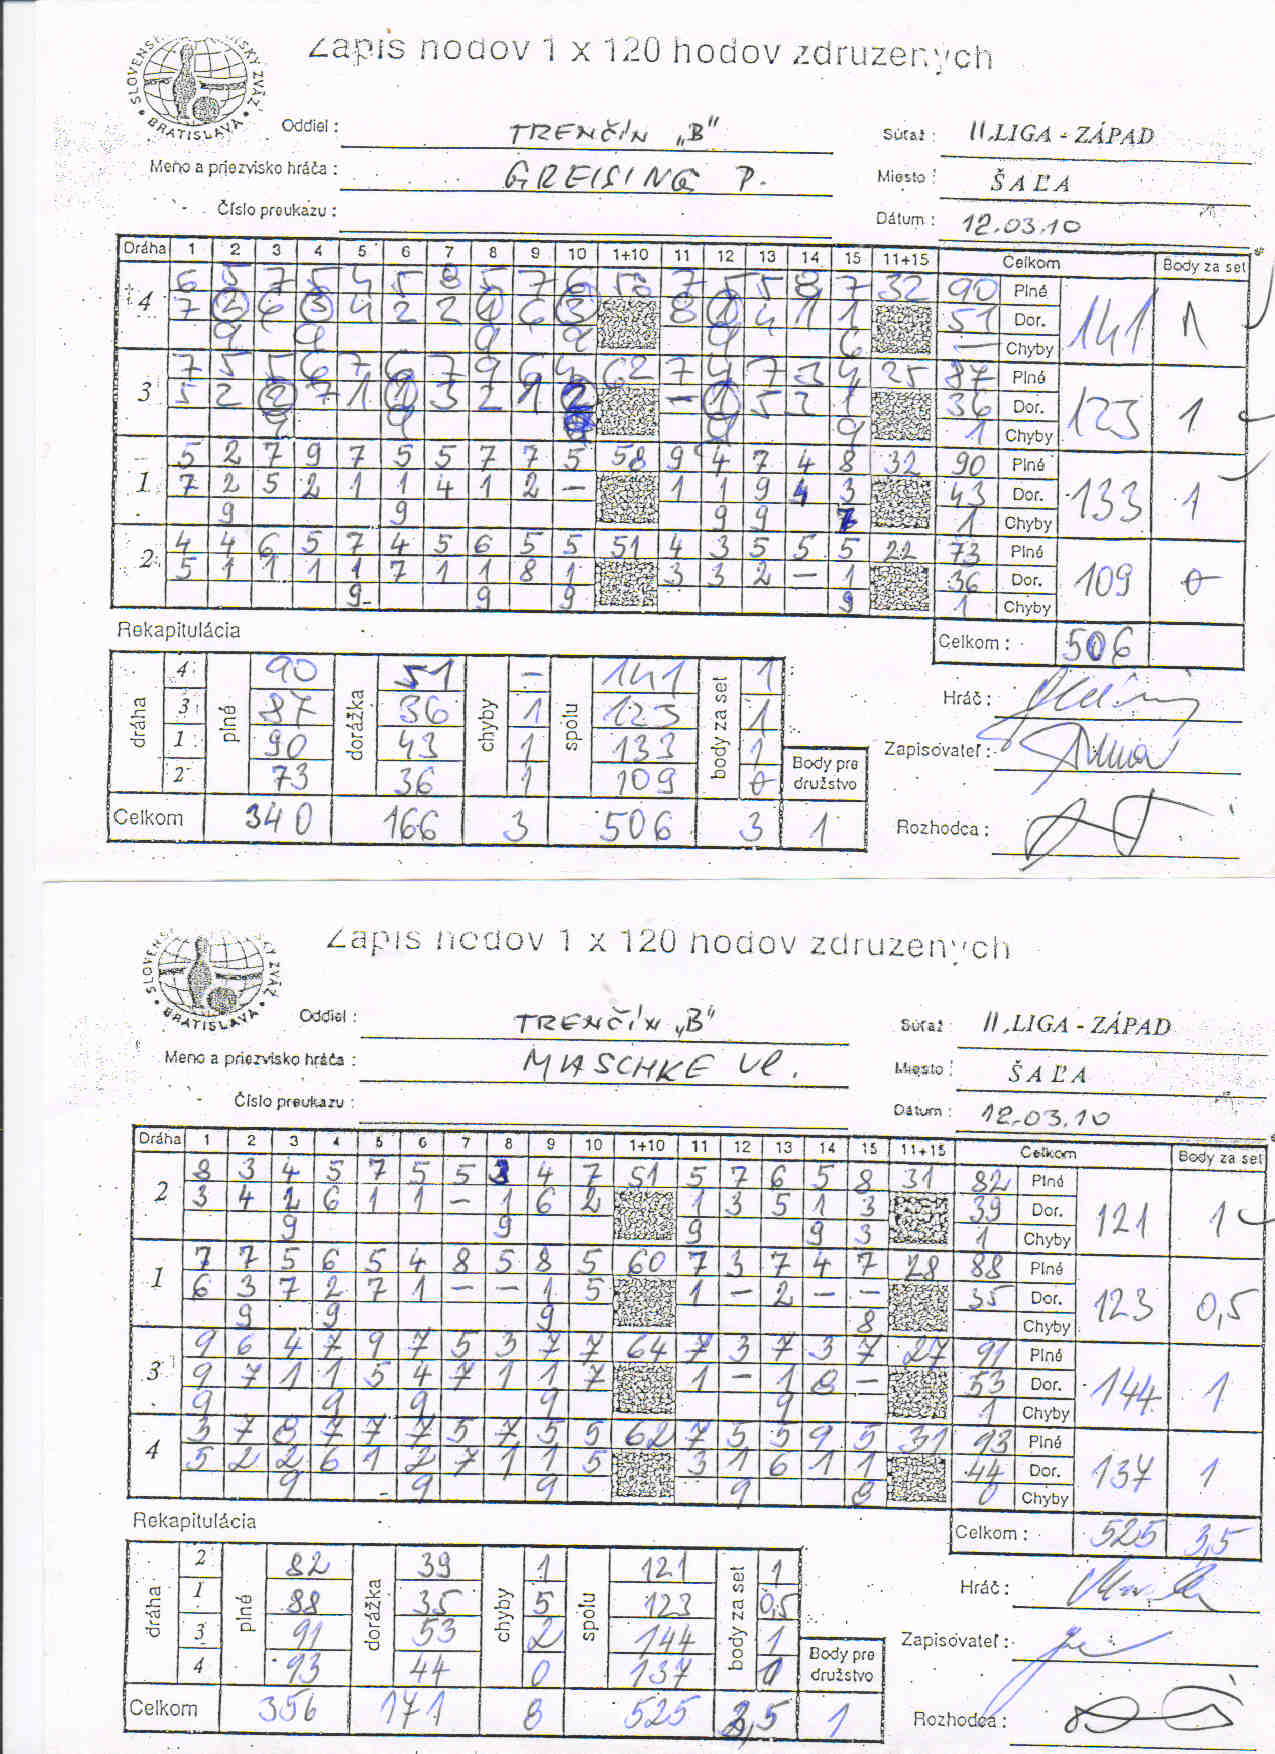 Zapis hodov 1 x 120 hodov združených
BRATISLAVA
Oddiel : TRENČÍN „B" Súťaž : II.LIGA - ZÁPAD
Meno a priezvisko hráča : GREISING P. Miesto : ŠAĽA
Číslo preukazu : Dátum : 12.03.10
Dráha 1 2 3 4 5 6 7 8 9 10 1+10 11 12 13 14 15 11+15 Celkom Body za set
4 6 5 7 5 4 5 8 5 7 6 58 7 5 5 8 7 32 90 Plné 141 1
7 2 6 3 4 2 2 1 6 3 8 1 4 1 1 51 Dor.
9 9 9 9 9 6 — Chyby
3 7 5 5 6 7 6 7 9 6 4 62 7 4 7 3 4 25 87 Plné 123 1
5 2 2 7 1 1 3 2 1 2 – 1 5 2 1 36 Dor.
9 9 9 9 1 Chyby
1 5 2 7 9 7 5 5 7 7 5 58 9 4 7 4 8 32 90 Plné 133 1
7 2 5 2 1 1 4 1 2 – 1 1 9 4 3 43 Dor.
9 9 9 9 7 1 Chyby
2 4 4 6 5 7 4 5 6 5 5 51 4 3 5 5 5 22 73 Plné 109 0
5 1 1 1 1 7 1 1 8 1 3 3 2 – 1 36 Dor.
9 9 9 9 1 Chyby
Rekapitulácia Celkom : 506
dráha plné dorážka chyby spolu body za set
4 90 51 – 141 1
3 87 36 1 123 1
1 90 43 1 133 1
2 73 36 1 109 0
Body pre družstvo
Celkom 340 166 3 506 3 1
Hráč :
Zapisovateľ :
Rozhodca :
Zapis hodov 1 x 120 hodov združených
BRATISLAVA
Oddiel : TRENČÍN „B" Súťaž : II.LIGA - ZÁPAD
Meno a priezvisko hráča : MASCHKE Vl. Miesto : ŠAĽA
Číslo preukazu : Dátum : 12.03.10
Dráha 1 2 3 4 5 6 7 8 9 10 1+10 11 12 13 14 15 11+15 Celkom Body za set
2 8 3 4 5 7 5 5 3 4 7 51 5 7 6 5 8 31 82 Plné 121 1
3 4 2 6 1 1 – 1 6 2 1 3 5 1 3 39 Dor.
9 9 9 9 3 1 Chyby
1 7 7 5 6 5 4 8 5 8 5 60 7 3 7 4 7 28 88 Plné 123 0,5
6 3 7 2 7 1 – – 1 5 1 – 2 – – 35 Dor.
9 9 9 8 Chyby
3 9 6 4 7 9 7 5 3 7 7 64 7 3 7 3 7 27 91 Plné 144 1
9 7 1 1 5 4 7 1 1 7 1 – 1 8 – 53 Dor.
9 9 9 9 9 1 Chyby
4 3 7 8 7 7 7 5 7 5 5 62 7 5 5 9 5 31 93 Plné 137 1
5 2 2 6 1 2 7 1 1 5 3 1 6 1 1 44 Dor.
9 9 9 9 8 0 Chyby
Rekapitulácia Celkom : 525 3,5
dráha plné dorážka chyby spolu body za set
2 82 39 1 121 1
1 88 35 5 123 0,5
3 91 53 2 144 1
4 93 44 0 137
Body pre družstvo
Celkom 356 171 8 525 3,5 1
Hráč :
Zapisovateľ :
Rozhodca :